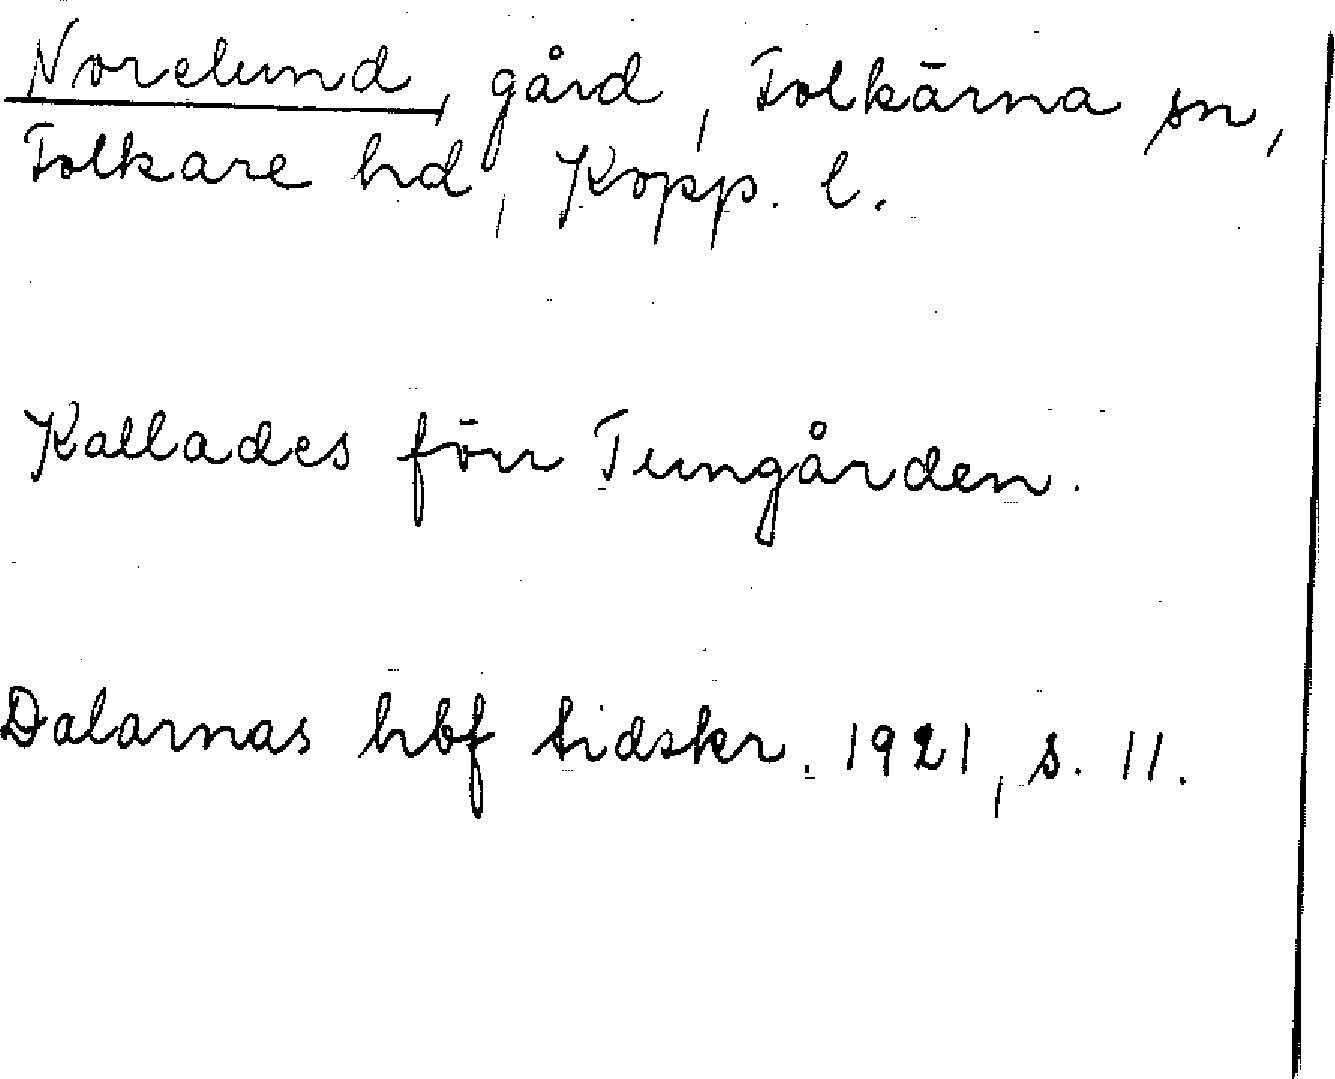 Norelund, gård, Folkärna sn,
Folkare hd, Kopp. l.
Kallades förr Tungården.
Dalarnas hbf tidskr. 1921, s. 11.